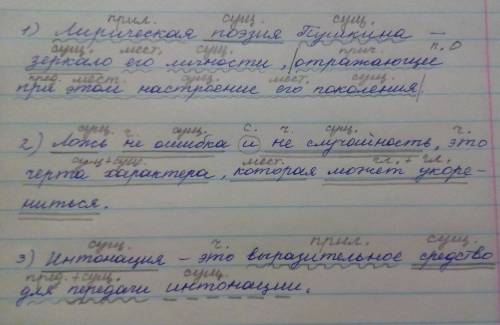 прил. сущ. сущ.
1) Лирическая поэзия Пушкина –
сущ. мест. сущ. прич. п.О
зеркало его личности, |отражающее
пред. мест. сущ. мест. сущ.
при этом настроение его поколения|
сущ. ч. сущ. с. ч. сущ. ч.
2) Ложь не ошибка и не случайность, это
сущ+сущ. мест. гл. + гл.
черта характера, которая может укоре-
ниться.
сущ. ч. прил. сущ.
3) Интонация – это выразительное средство
пред. + сущ. сущ.
для передачи интонации.